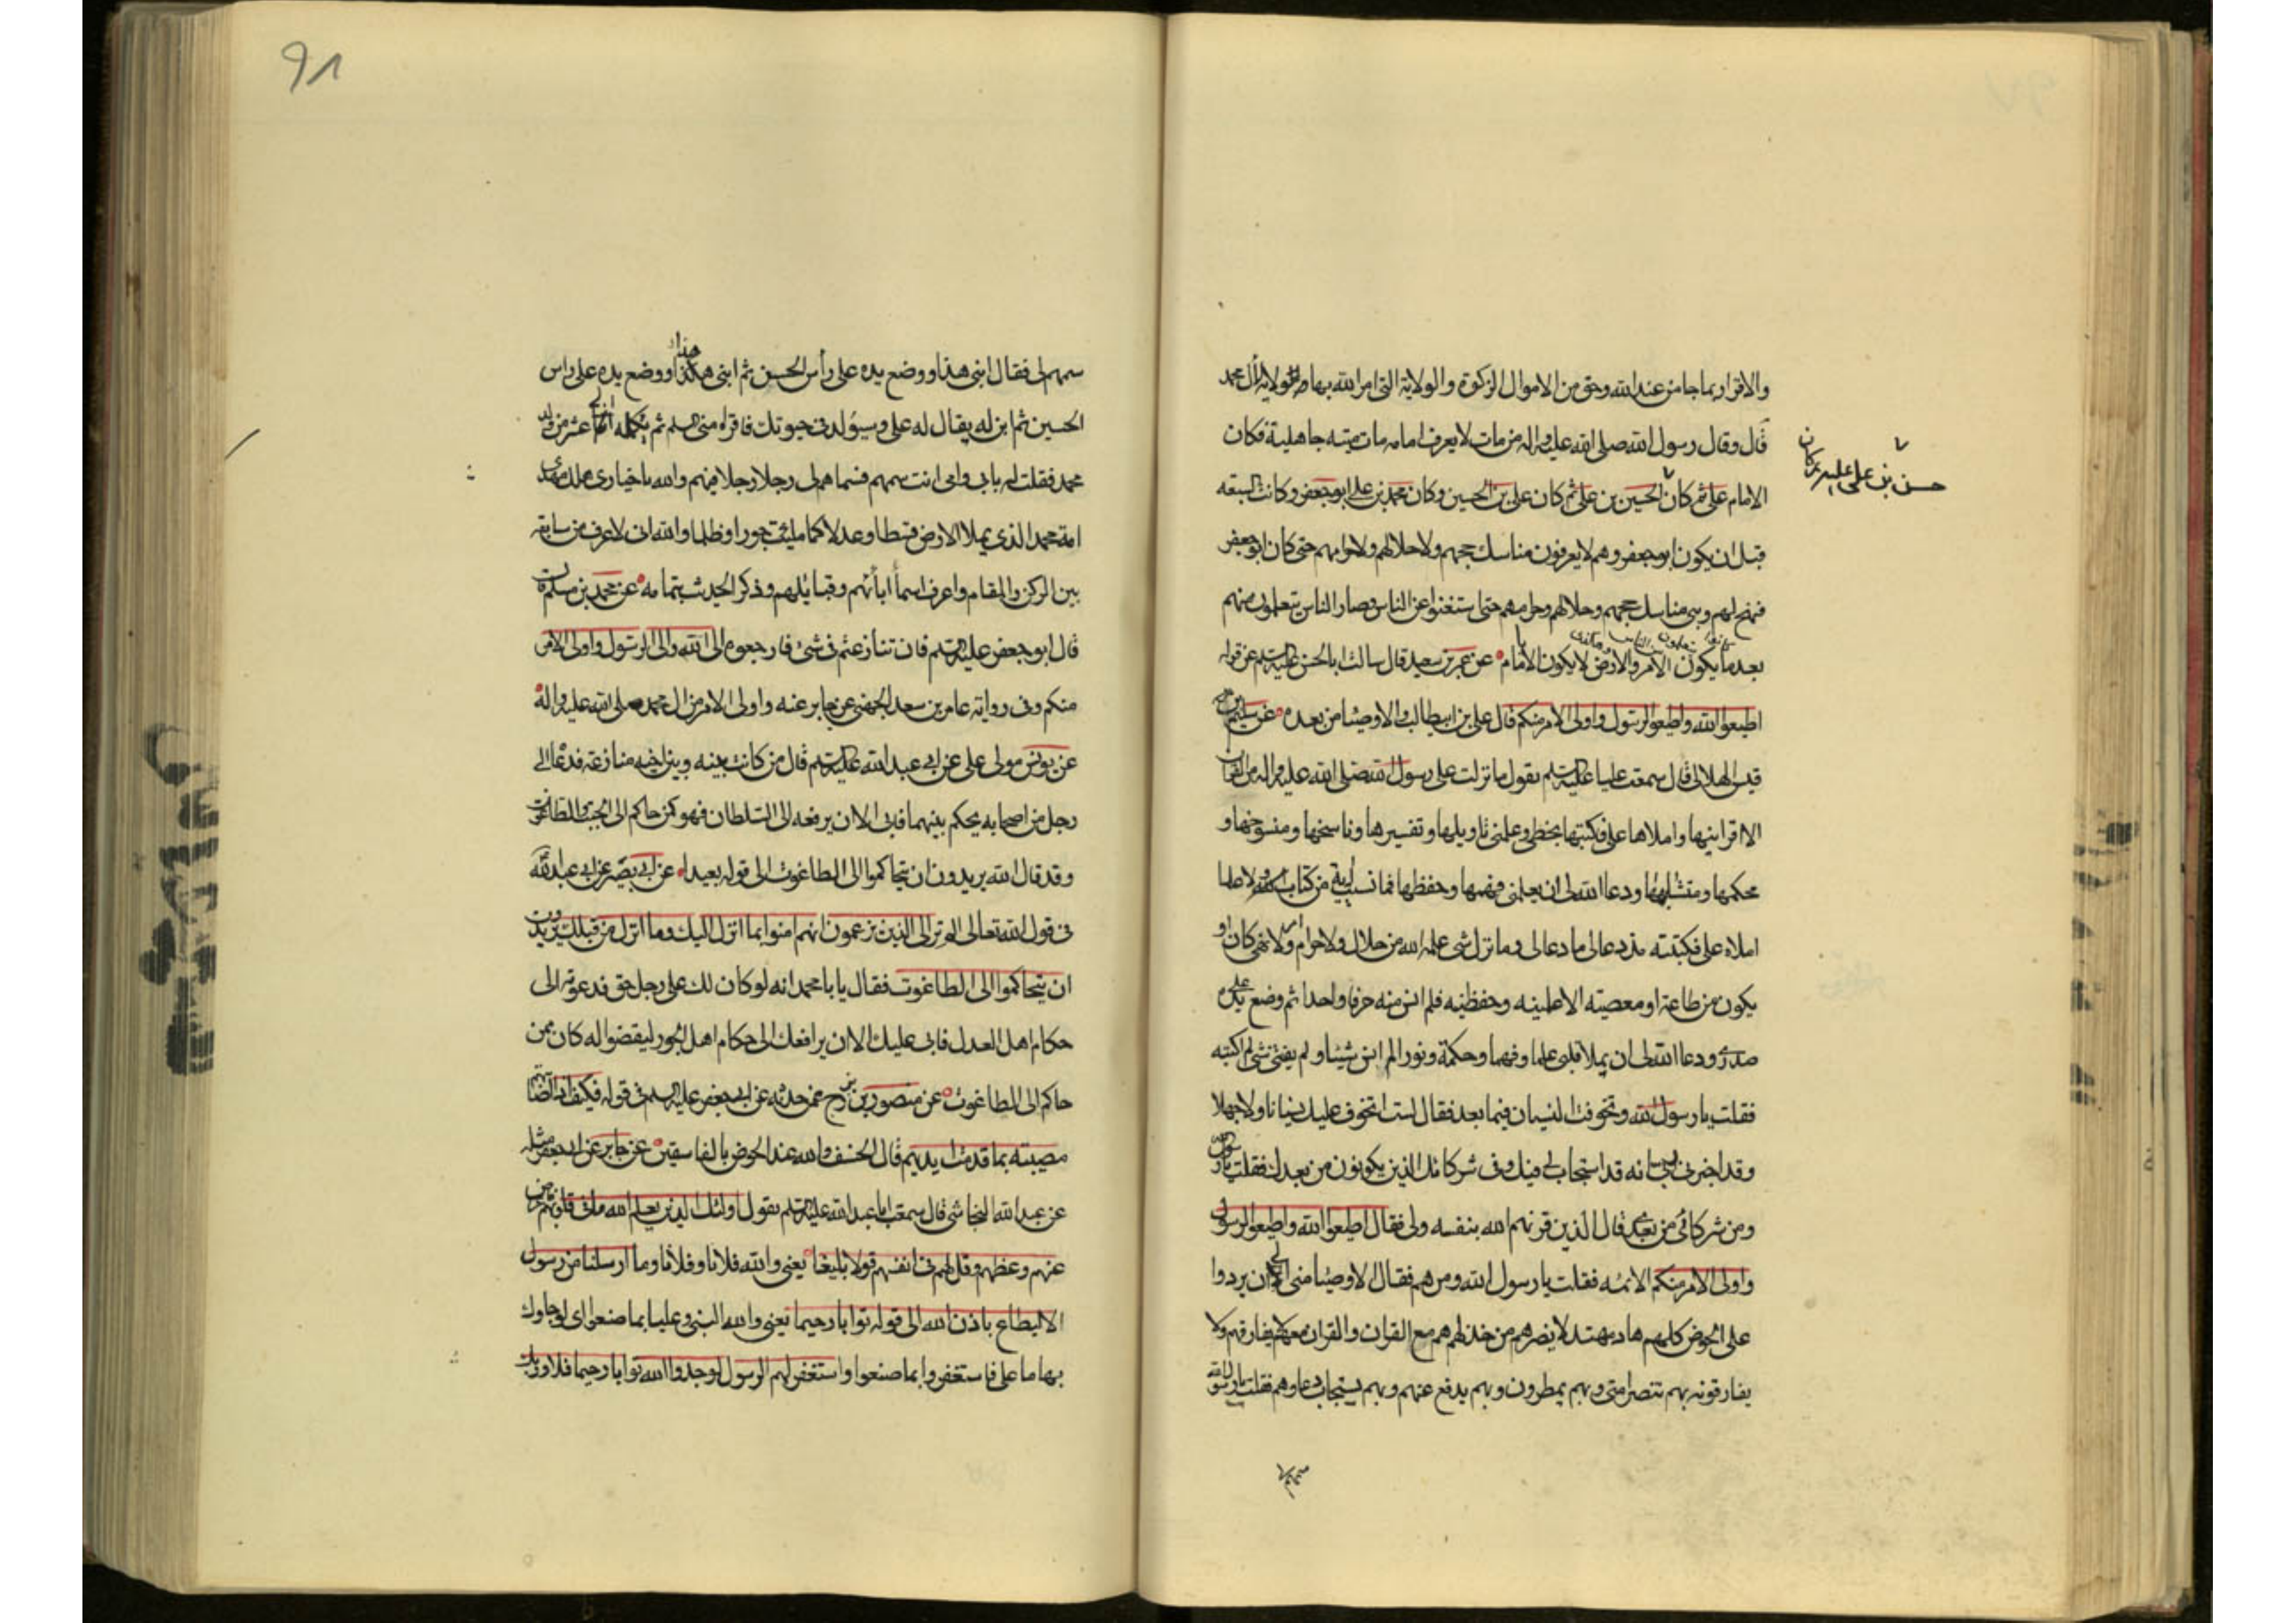 والاقرار بما جا من عند الله وحق من الاموال الزكوة والولاية التى امر الله بها ولاية آل محمد
قال وقال رسول الله صلى الله عليه واله من مات لا يعرف امامه مات ميتة جاهلية فكان
الامام على ثم كان الحسين بن على ثم كان على بن الحسين وكان محمد بن على ابو جعفر وكانت الشيعة
حسن بن على عليه كان
قبل ان يكون ابو جعفر وهم لا يعرفون مناسك حجهم ولا حلالهم ولا حرامهم حتى كان ابو جعفر
فنهج لهم وبين مناسك حجهم وحلالهم وحرامهم حتى استغنوا عن الناس وصار الناس يتعلمون منهم
بعد ما يكون الامر والارض لا يكون الا بامام عن عمر بن سعيد قال سالت ابا الحسن عليه السلم عن قوله
اطيعوا الله واطيعوا الرسول واولى الامر منكم قال على بن ابيطالب والاوصيا من بعده عن سليم بن
قيس الهلالى قال سمعت عليا عليه السلم يقول ما نزلت على رسول الله صلى الله عليه واله من القران
الا اقرانيها واملاها على فكتبتها بخطى وعلمنى تاويلها وتفسيرها وناسخها ومنسوخها و
محكمها ومتشابهها ودعا الله لى ان يعلمنى فهمها وحفظها فما نسيت اية من كتاب الله ولا علما
املاه على فكتبته منذ دعا لى ما دعا لى وما نزل شى علمه الله من حلال ولا حرام امر ولا نهى كان او
يكون من طاعة او معصيته الا علمنيه وحفظنيه فلم انس منه حرفا واحدا ثم وضع يده على
صدرى ودعا الله لى ان يملا قلبى علما وفهما وحكمة ونورا لم انس شيئا ولم يفتنى شى لم اكتبه
فقلت يا رسول الله وتخوفت النسيان فيما بعد فقال لست اتخوف عليك نسيانا ولا جهلا
وقد اخبرنى ربى انه قد استجاب لى فيك وفى شركائك الذين يكونون من بعدك فقلت يا رسول الله
ومن شركائى من بعدى قال الذين قرنهم الله بنفسه وبى فقال اطيعوا الله واطيعوا الرسول
واولى الامر منكم الائمه فقلت يا رسول الله ومن هم فقال الاوصيا منى الى ان يردوا
على الحوض كلهم هاد مهتد لا يضرهم من خذلهم هم مع القران والقران معهم لا يفارقهم ولا
يفارقونه بهم تنصر امتى وبهم يمطرون وبهم يدفع عنهم وبهم يستجاب دعاوهم فقلت يا رسول الله
سمهم لى
91
سمهم لى فقال ابنى هذا ووضع يده على رأس الحسن ثم ابنى هذا ووضع يده على راس
الحسين ثم ابن له يقال له على وسيولد فى حيوتك فاقراه منى السلم ثم تكمله اثنى عشر من ولد
محمد فقلت له بابى وامى انت سمهم فسماهم لى رجلا رجلا فيهم والله يا خيار بنى هلال مهدى
امة محمد الذى يملا الارض قسطا وعدلا كما ملئت جورا وظلما والله انى لاعرف من يبايعه
بين الركن والمقام واعرف اسماء آبائهم وقبايلهم وذكر الحديث بتمامه عن محمد بن مسلم
قال ابو جعفر عليه السلم فان تنازعتم فى شئ فارجعوه الى الله والى الرسول واولى الامر
منكم وفى رواية عامر بن سعد الجهنى عن جابر عنه واولى الامر من ال محمد صلى الله عليه واله
عن يونس مولى على عن ابى عبد الله عليه السلم قال من كانت بينه وبين اخيه منازعة فدعاه الى
رجل من اصحابه يحكم بينهما فابى الا ان يرفعه الى السلطان فهو كمن حاكم الى الجبت والطاغوت
وقد قال الله يريدون ان يتحاكموا الى الطاغوت الى قوله بعيدا عن ابى بصير عن ابى عبد الله
فى قول الله تعالى الم تر الى الذين يزعمون انهم امنوا بما انزل اليك وما انزل من قبلك يريدون
ان يتحاكموا الى الطاغوت فقال يا با محمد انه لو كان لك على رجل حق فدعوته الى
حكام اهل العدل فابى عليك الا ان يرافعك الى حكام اهل الجور ليقضوا له كان ممن
حاكم الى الطاغوت عن منصور بن عمن حدثه عن ابى جعفر عليه السلم فى قوله فكيف اذا اصابتهم
مصيبة بما قدمت ايديهم قال الخسف والله عند الحوض بالفاسقين عن جابر عن ابى جعفر مثله
عن عبد الله النجاشى قال سمعت ابا عبد الله عليه السلم يقول اولئك الذين يعلم الله ما فى قلوبهم فاعرض
عنهم وعظهم وقل لهم فى انفسهم قولا بليغا يعنى والله فلانا وفلانا وما ارسلنا من رسول
الا ليطاع باذن الله الى قوله توابا رحيما يعنى والله النبى وعليا بما صنعوا اى لو جاوك
بها يا على فاستغفروا بما صنعوا واستغفر لهم الرسول لوجدوا الله توابا رحيما فلا وربك